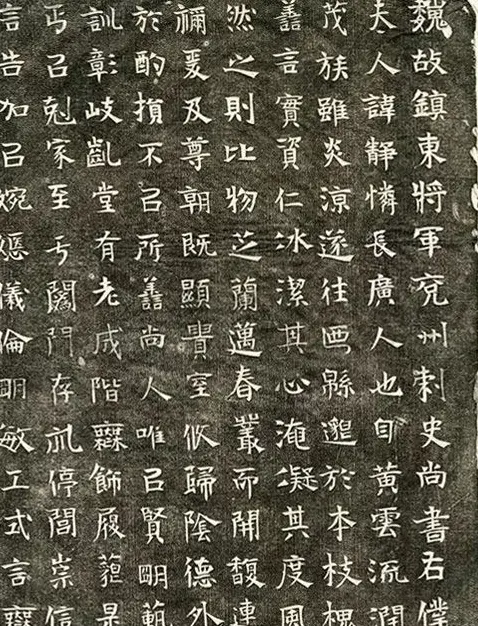 魏故鎮東將軍兗州刺史尚書右僕
夫人諱靜憐長廣人也自黃雲流潤
茂族雖炎涼遂往緜邈於本枝槐
譱言實資仁冰潔其心淹凝其度風
然之則比物芝蘭邁春叢而開馥連
禰爰及尊朝既顯貴室攸歸陰德外
於酌損不㠯所譱尚人唯㠯賢明範
訓彰岐凱堂有老成階飾履是
㠯剋家至亐闔門存停閭崇信
言告加㠯婉儀倫明敏工式言